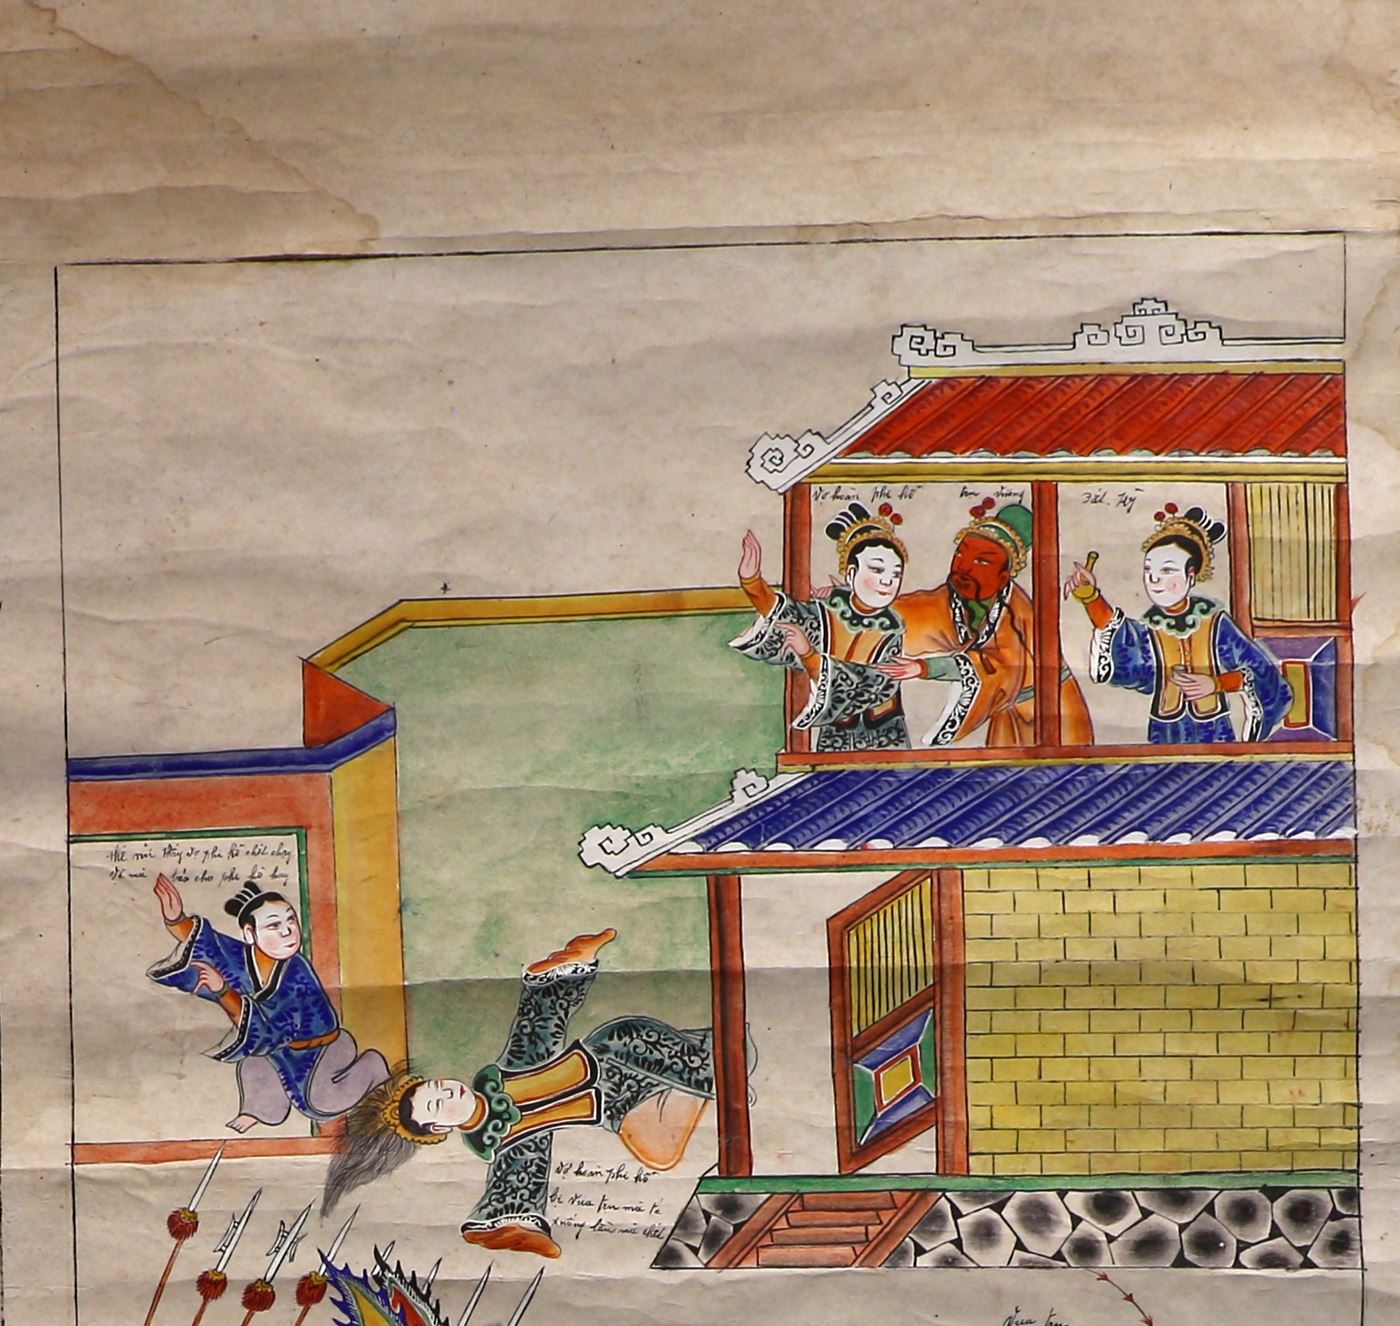 Vợ hoàn phi hổ
trụ vương
Đát Kỷ
thế nữ thấy vợ phi hổ chết chạy
về mà báo cho phi hổ hay
Vợ hoàn phi hổ
bị vua trụ mà té
xuống lầu mà chết
Vua trụ